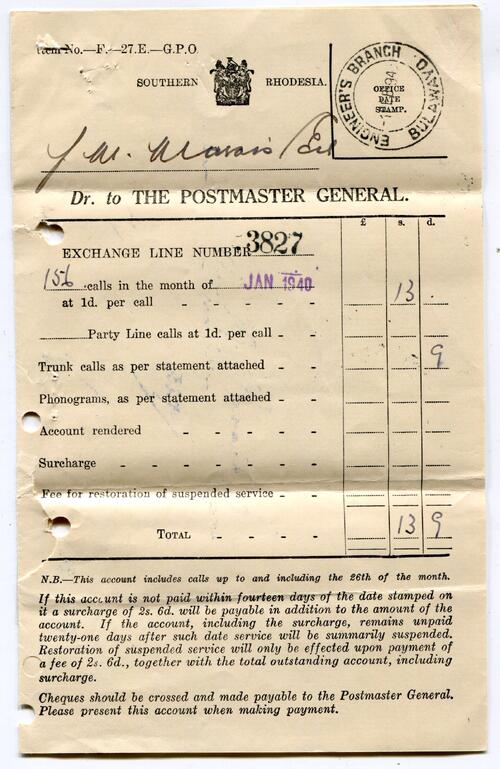 Item No.—F.—27.E.—G.P.O.
SOUTHERN RHODESIA.
ENGINEER'S BRANCH
OFFICE
DATE
STAMP.
J. M. Marais Esq
Dr. to THE POSTMASTER GENERAL.
£ s. d.
EXCHANGE LINE NUMBER 3827
156 calls in the month of JAN 1940
at 1d. per call - - - - - 13 .
Party Line calls at 1d. per call - -
Trunk calls as per statement attached - - 9
Phonograms, as per statement attached - -
Account rendered - - - - -
Surcharge - - - - - - -
Fee for restoration of suspended service - -
TOTAL - - - - 13 9
N.B.—This account includes calls up to and including the 26th of the month.
If this account is not paid within fourteen days of the date stamped on
it a surcharge of 2s. 6d. will be payable in addition to the amount of the
account. If the account, including the surcharge, remains unpaid
twenty-one days after such date service will be summarily suspended.
Restoration of suspended service will only be effected upon payment of
a fee of 2s. 6d., together with the total outstanding account, including
surcharge.
Cheques should be crossed and made payable to the Postmaster General.
Please present this account when making payment.